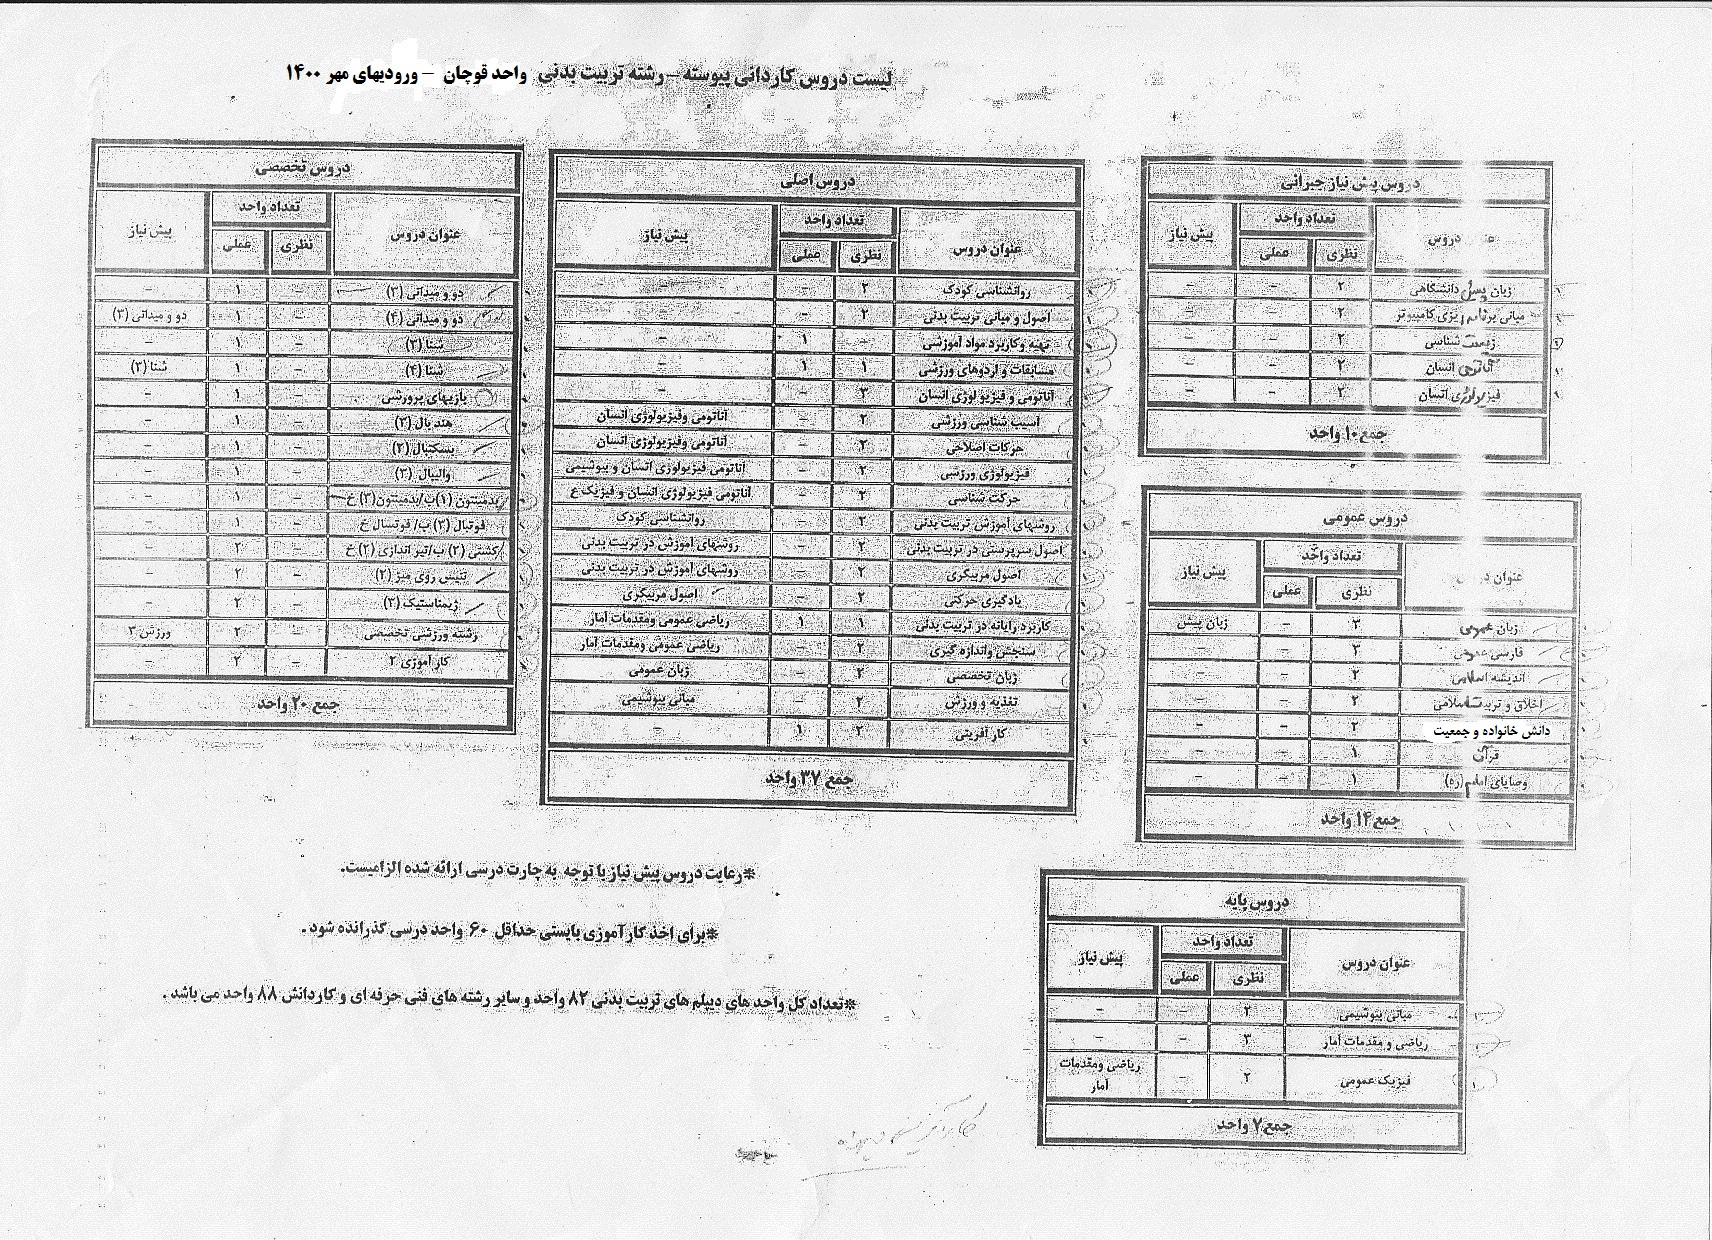 لیست دروس کاردانی پیوسته – رشته تربیت بدنی واحد قوچان – ورودیهای مهر ۱۴۰۰
دروس پیش نیاز جبرانی
عنوان دروس تعداد واحد پیش نیاز
نظری عملی
زبان پیش دانشگاهی ۲ – –
مبانی برنامه ریزی کامپیوتر ۲ – –
زیست شناسی ۲ – –
آناتومی انسان ۲ – –
فیزیولوژی انسان ۲ – –
جمع ۱۰ واحد
دروس عمومی
عنوان دروس تعداد واحد پیش نیاز
نظری عملی
زبان عمومی ۳ – زبان پیش
فارسی عمومی ۳ – –
اندیشه اسلامی ۲ – –
اخلاق و تربیت اسلامی ۲ – –
دانش خانواده و جمعیت ۲ – –
قرآن ۱ – –
وصایای امام (ره) ۱ – –
جمع ۱۴ واحد
دروس پایه
عنوان دروس تعداد واحد پیش نیاز
نظری عملی
مبانی بیوشیمی ۲ – –
ریاضی و مقدمات آمار ۳ – –
فیزیک عمومی ۲ – ریاضی ومقدمات آمار
جمع ۷ واحد
دروس اصلی
عنوان دروس تعداد واحد پیش نیاز
نظری عملی
روانشناسی کودک ۲ – –
اصول و مبانی تربیت بدنی ۲ – –
تهیه وکاربرد مواد آموزشی – ۱ –
مسابقات و اردوهای ورزشی ۱ ۱ –
آناتومی و فیزیولوژی انسان ۳ – –
آسیب شناسی ورزشی ۲ – آناتومی وفیزیولوژی انسان
حرکات اصلاحی ۲ – آناتومی وفیزیولوژی انسان
فیزیولوژی ورزشی ۲ – آناتومی فیزیولوژی انسان و بیوشیمی
حرکت شناسی ۲ – آناتومی فیزیولوژی انسان و فیزیک ع
روشهای آموزش تربیت بدنی ۲ – روانشناسی کودک
اصول سرپرستی در تربیت بدنی ۲ – روشهای آموزش در تربیت بدنی
اصول مربیگری ۲ – روشهای آموزش در تربیت بدنی
یادگیری حرکتی ۲ – اصول مربیگری
کاربرد رایانه در تربیت بدنی ۱ ۱ ریاضی عمومی ومقدمات آمار
سنجش واندازه گیری ۲ – ریاضی عمومی ومقدمات آمار
زبان تخصصی ۲ – زبان عمومی
تغذیه و ورزش ۲ – مبانی بیوشیمی
کارآفرینی ۲ ۱ –
جمع ۳۷ واحد
دروس تخصصی
عنوان دروس تعداد واحد پیش نیاز
نظری عملی
دو و میدانی (۳) – ۱ –
دو و میدانی (۴) – ۱ دو و میدانی (۳)
شنا (۳) – ۱ –
شنا (۴) – ۱ شنا (۳)
بازیهای پرورشی – ۱ –
هندبال (۲) – ۱ –
بسکتبال (۲) – ۱ –
والیبال (۳) – ۱ –
بدمینتون (۱)ب/بدمینتون(۳) خ – ۱ –
فوتبال (۳) ب/ فوتسال خ – ۱ –
کشتی (۲) ب/تیر اندازی (۲) خ – ۲ –
تنیس روی میز (۲) – ۲ –
ژیمناستیک (۳) – ۲ –
رشته ورزشی تخصصی – ۲ ورزش ۳
کار آموزی ۲ – ۲ –
جمع ۲۰ واحد
*رعایت دروس پیش نیاز با توجه به چارت درسی ارائه شده الزامیست.
*برای اخذ کارآموزی بایستی حداقل ۶۰ واحد درسی گذرانده شود.
*تعداد کل واحد های دیپلم های تربیت بدنی ۸۲ واحد و سایر رشته های فنی حرفه ای و کاردانش ۸۸ واحد می باشد.